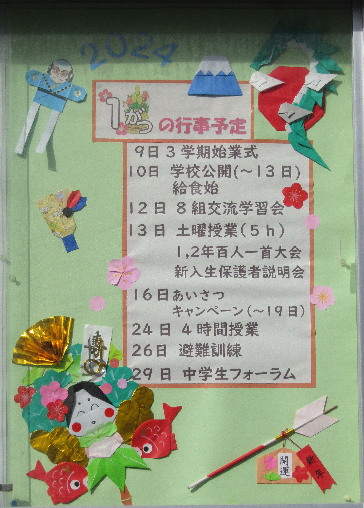 2024
1がつの行事予定
9日3学期始業式
10日 学校公開(〜13日)
給食始
12日 8組交流学習会
13日 土曜授業(5h)
1,2年百人一首大会
新入生保護者説明会
16日あいさつ
キャンペーン(〜19日)
24日 4時間授業
26日 避難訓練
29日 中学生フォーラム
開運